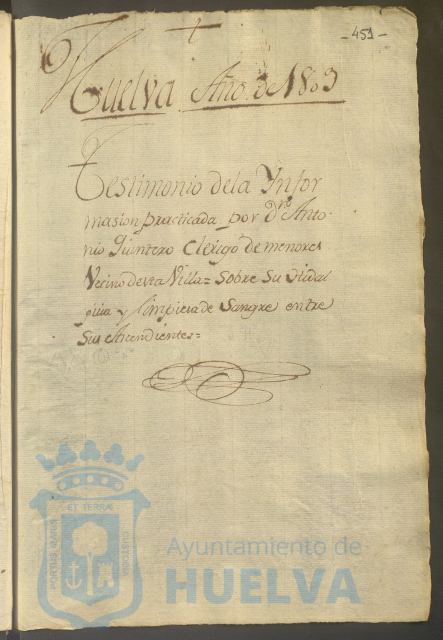 -451-
Huelva Año de 1803
Testimonio dela Infor
masion practicada por dn. Anto
nio Quintero Clerigo de menores
Vecino desta Villa = sobre su Hidal
guia y Limpieza de Sangre entre
sus Acendientes=
ET TERRÆ
PORTUS MARIS
CUSTODIA
Ayuntamiento de
HUELVA